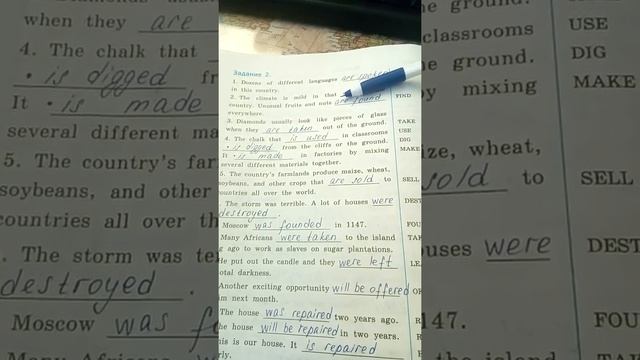 Задание 2.
1. Dozens of different languages are spoken
in this country.
2. The climate is mild in that
country. Unusual fruits and nuts are found FIND
everywhere.
3. Diamonds usually look like pieces of glass
when they are taken out of the ground. TAKE
4. The chalk that is used in classrooms USE
is digged from the cliffs or the ground. DIG
It is made in factories by mixing MAKE
several different materials together.
5. The country's farmlands produce maize, wheat,
soybeans, and other crops that are sold to SELL
countries all over the world.
The storm was terrible. A lot of houses were DEST
destroyed.
Moscow was founded in 1147. FOU
Many Africans were taken to the island TAK
g ago to work as slaves on sugar plantations.
He put out the candle and they were left LE
otal darkness.
Another exciting opportunity will be offered OF
am next month.
The house was repaired two years ago. R
he house will be repaired in two years. R
his is our house. It is repaired
rly.
when they are
4. The chalk that
is digged fr
It is made
several different ma
5. The country's far
soybeans, and other
countries all over th
. The storm was te
destroyed.
Moscow was f
Many Africans w
ground.
classrooms USE
the ground. DIG
mixing MAKE
ize, wheat,
sold to SELL
ouses were DEST
1147. FOU
the island TAK